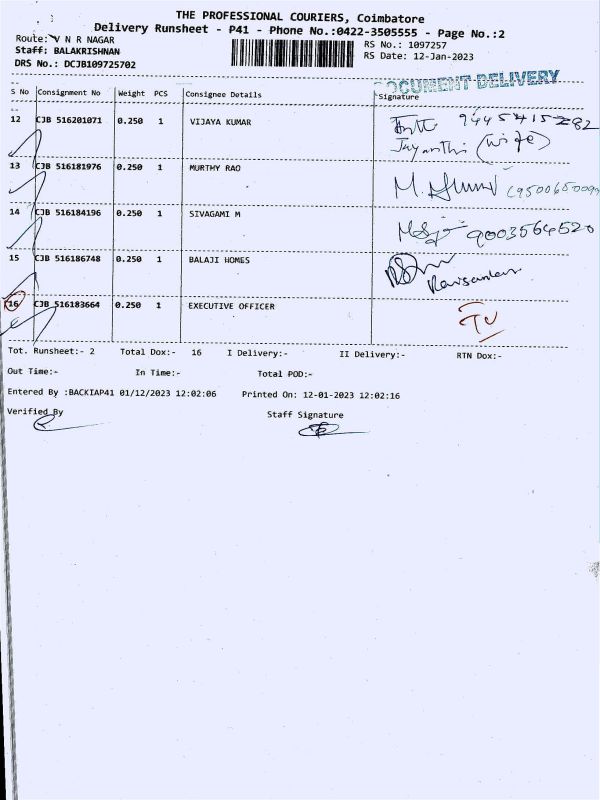 THE PROFESSIONAL COURIERS, Coimbatore
Delivery Runsheet - P41 - Phone No.:0422-3505555 - Page No.:2
Route: V N R NAGAR
RS No.: 1097257
Staff: BALAKRISHNAN
RS Date: 12-Jan-2023
DRS No.: DCJB109725702
DOCUMENT DELIVERY
S No Consignment No Weight PCS Consignee Details Signature
12 CJB 516201071 0.250 1 VIJAYA KUMAR
Jayanthi (wife)
13 CJB 516181976 0.250 1 MURTHY RAO
14 CJB 516184196 0.250 1 SIVAGAMI M 9003564520
15 CJB 516186748 0.250 1 BALAJI HOMES
16 CJB 516183664 0.250 1 EXECUTIVE OFFICER
Tot. Runsheet:- 2 Total Dox:- 16 I Delivery:- II Delivery:- RTN Dox:-
Out Time:- In Time:- Total POD:-
Entered By :BACKIAP41 01/12/2023 12:02:06 Printed On: 12-01-2023 12:02:16
Verified By Staff Signature